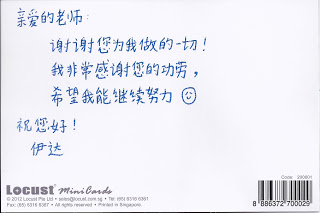 亲爱的老师：
谢谢您为我做的一切！
我非常感谢您的功劳，
希望我能继续努力
祝您好！
伊达
Locust MiniCards
© 2012 Locust Pte Ltd • sales@locust.com.sg • Tel: (65) 6316 6361
Fax: (65) 6316 6367 • All Rights Reserved • Printed in Singapore
Code: 200001
8 886372 700029